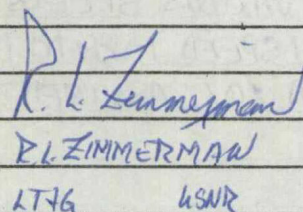 R. L. Zimmerman
R.L. ZIMMERMAN
LTJG USNR